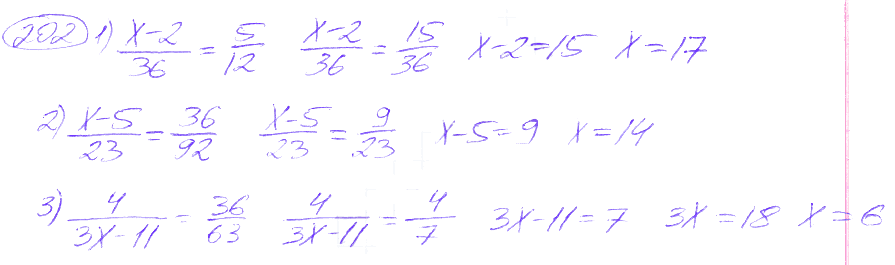 202 1) x-2/36 = 5/12 x-2/36 = 15/36 x-2=15 x=17
2) x-5/23 = 36/92 x-5/23 = 9/23 x-5=9 x=14
3) 4/3x-11 = 36/63 4/3x-11 = 4/7 3x-11=7 3x=18 x=6